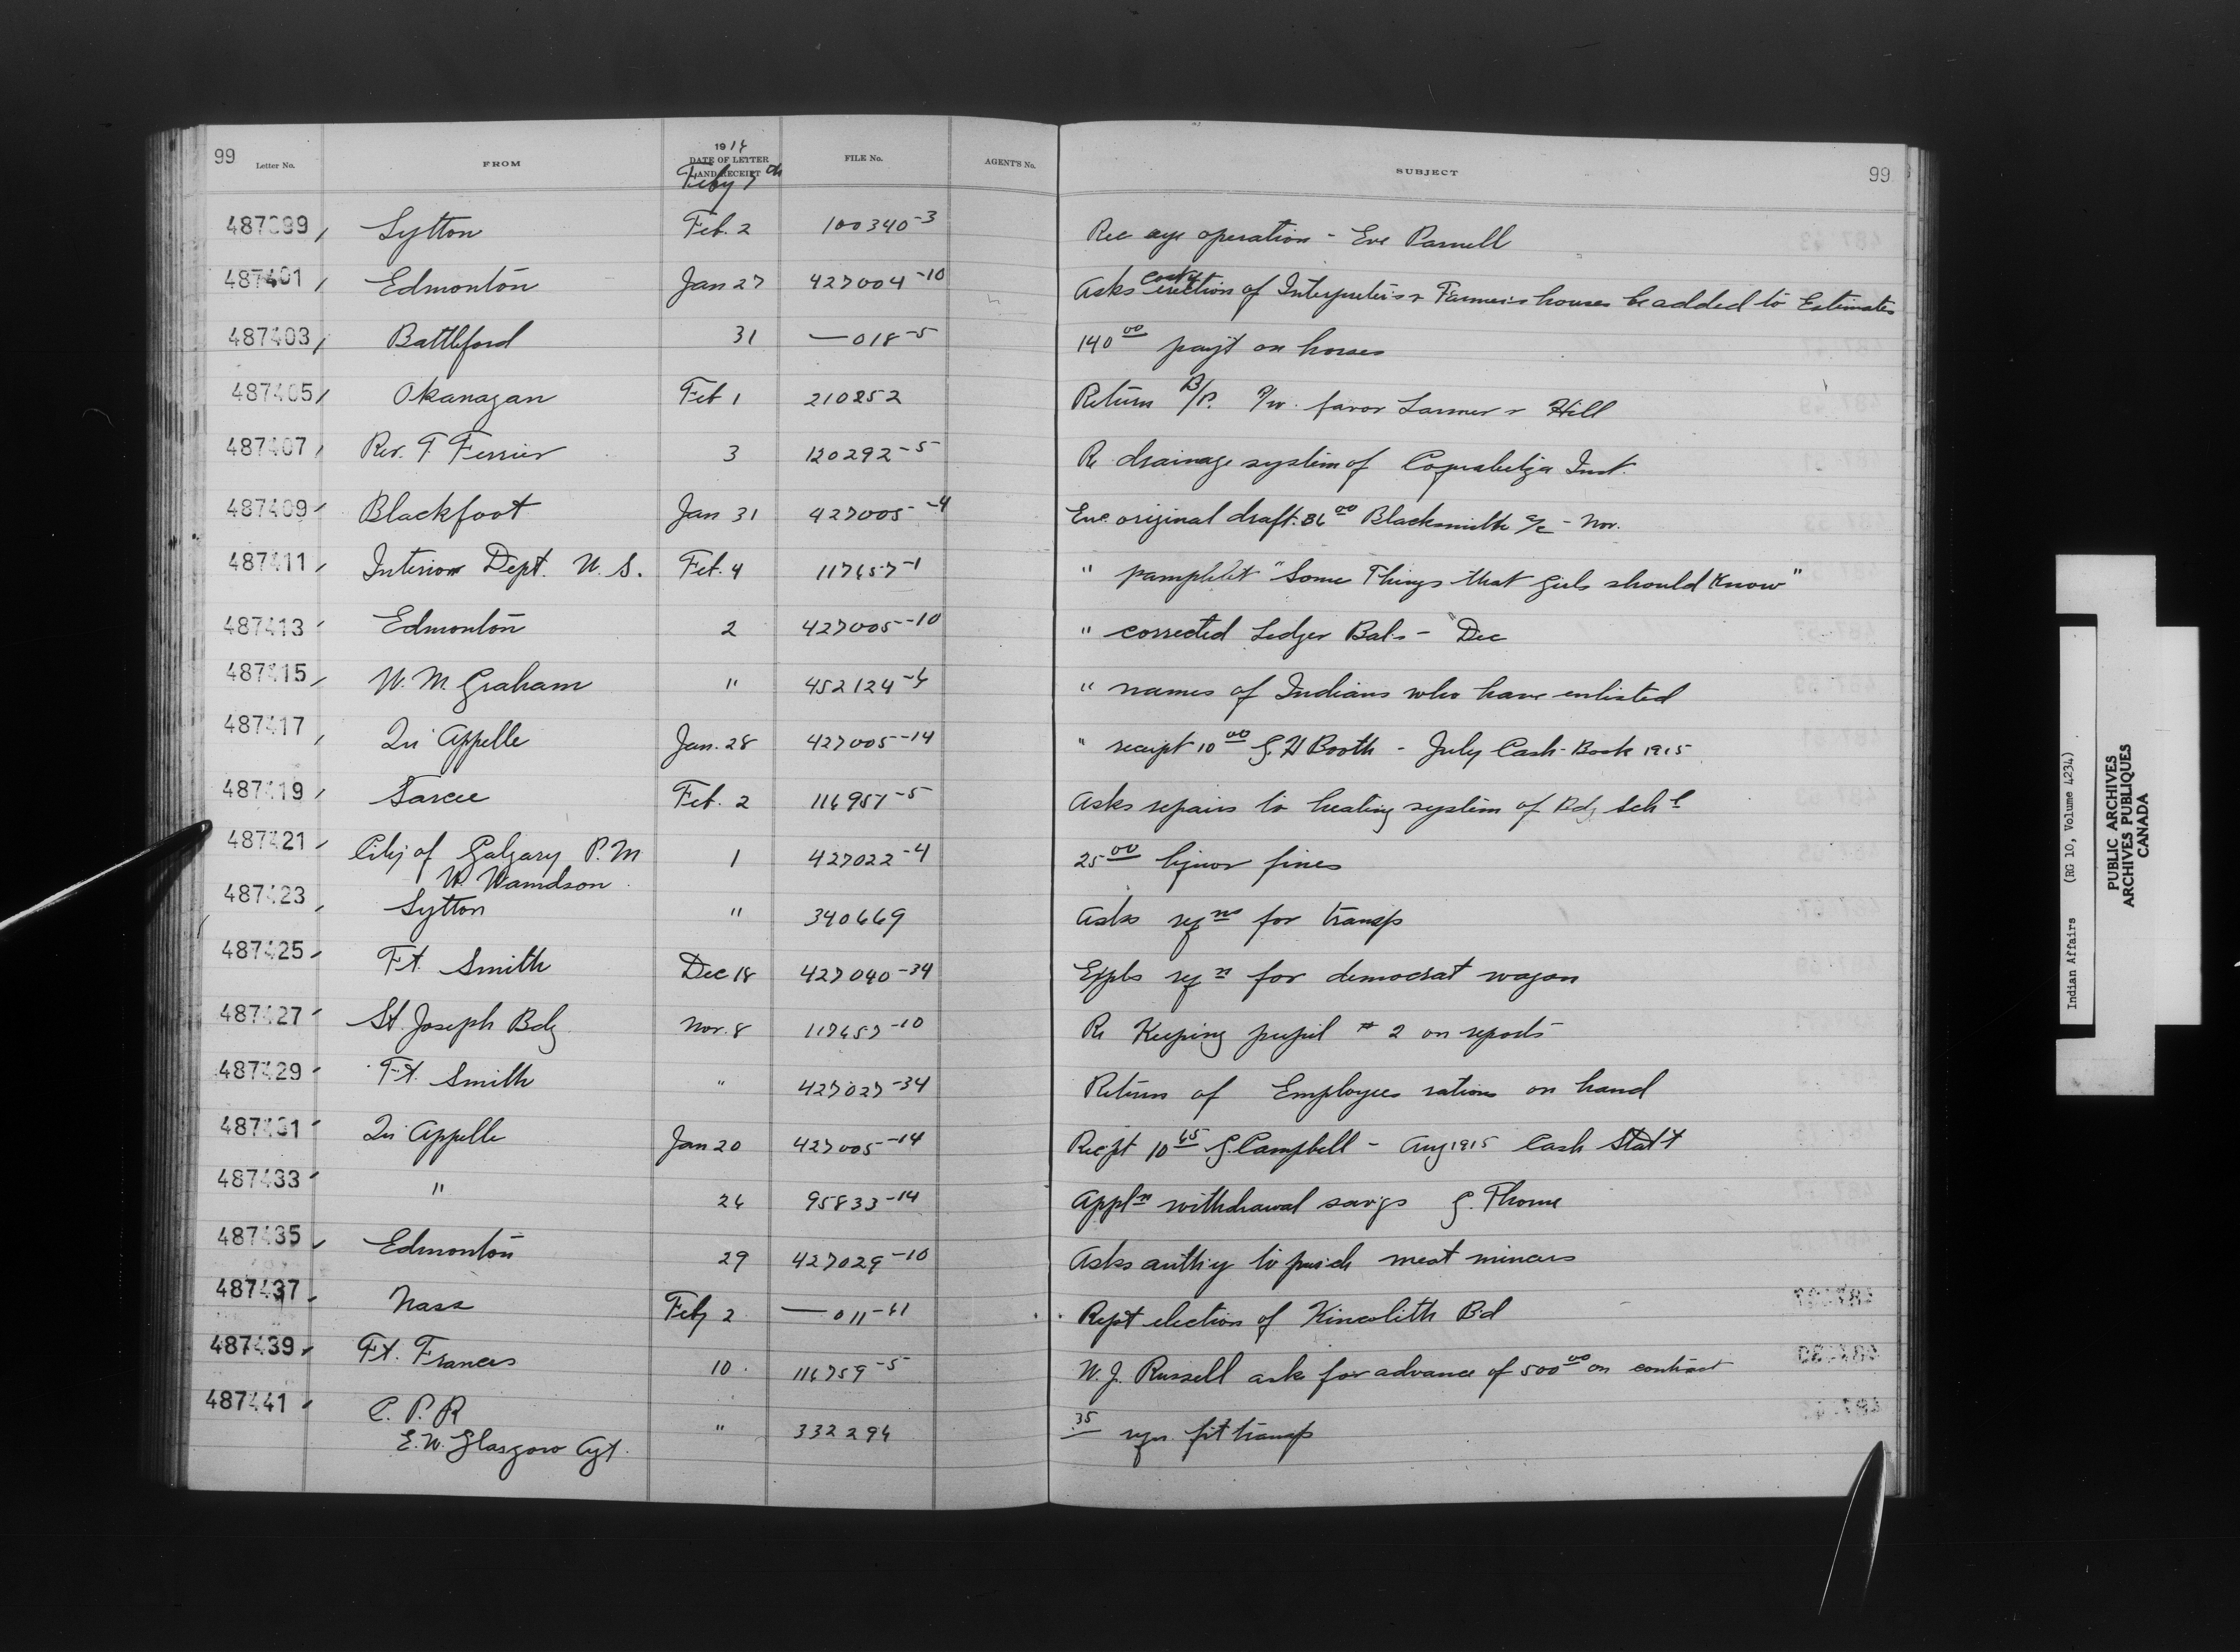 99 99
Letter No. FROM 1916 DATE OF LETTER AND RECEIPT FILE No. AGENT'S No. SUBJECT
Feby 7th
487399 Lytton Feb. 2 100340-3 Rec eye operation - Eve Parnell
487401 Edmonton Jan 27 427004-10 Asks cost of erection of Interpreter's & Farmer's houses be added to Estimates
487403 Battleford 31 —018-5 140 00 payt on horses
487405 Okanagan Feb 1 210252 Return B/P. favor Larmer & Hill
487407 Rev. T. Ferrier 3 120292-5 Re drainage system of Inst.
487409 Blackfoot Jan 31 427005-4 Enc original draft. 86 00 Blacksmith a/c - Nov.
487411 Interior Dept. U. S. Feb. 4 117657-1 " pamphlet "Some Things that girls should Know"
487413 Edmonton 2 427005-10 " corrected Ledger Bals - Dec
487415 W. M. Graham " 452124-6 " names of Indians who have enlisted
487417 Qu'Appelle Jan. 28 427005-14 " receipt 10 00 G. H Booth - July Cash-Book 1915
487419 Sarcee Feb. 2 116957-5 Asks repairs to heating system of Bdg Sch l
487421 City of Calgary P. M 1 427022-4 25 00 liquor fines
W.
487423 Lytton " 340669 Asks reqns for transp
487425 Ft. Smith Dec 18 427040-34 Expls reqn for democrat wagon
487427 St. Joseph Bdg Nov. 8 117657-10 Re Keeping pupil # 2 on reports
487429 Ft. Smith " 427027-34 Return of Employees rations on hand
487431 Qu'Appelle Jan 20 427005-14 Recpt 10 65 G. Campbell - Aug 1915 Cash Stat't
487433 " 26 95833-14 Appln withdrawal savgs G. Thorne
487435 Edmonton 29 427029-10 Asks auth'y to purch meat mincers
487437 Nass Feby 2 —011-61 Rept election of Kincolith Bd
487439 Ft. Frances 10 116759-5 W. J. Russell asks for advance of 500 00 on contract
487441 C. P. R " 332294 .35 reqn. frt transp
E. W. Glasgow Agt.
Indian Affairs (RG 10, Volume 4234)
PUBLIC ARCHIVES
ARCHIVES PUBLIQUES
CANADA